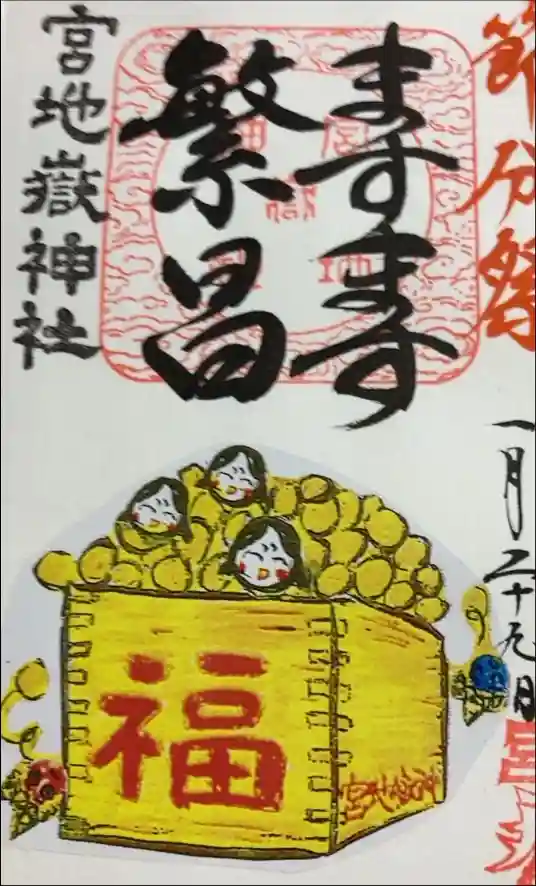 節分祭
一月二十九日
ますます
繁昌
宮地嶽神社
福
宮地嶽神社